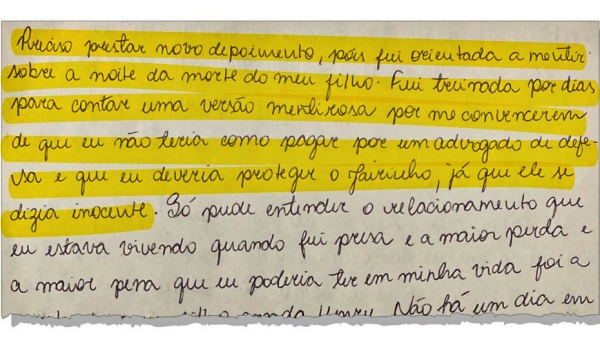 Preciso prestar novo depoimento, pois fui orientada a mentir
sobre a noite da morte do meu filho. Fui treinada por dias
para contar uma versão mentirosa por me convencerem
de que eu não teria como pagar por um advogado de defe-
sa e que eu deveria proteger o Jairinho, já que ele se
dizia inocente. Só pude entender o relacionamento que
eu estava vivendo quando fui presa e a maior perda e
a maior pena que eu poderia ter em minha vida foi a
Henry. Não há um dia em